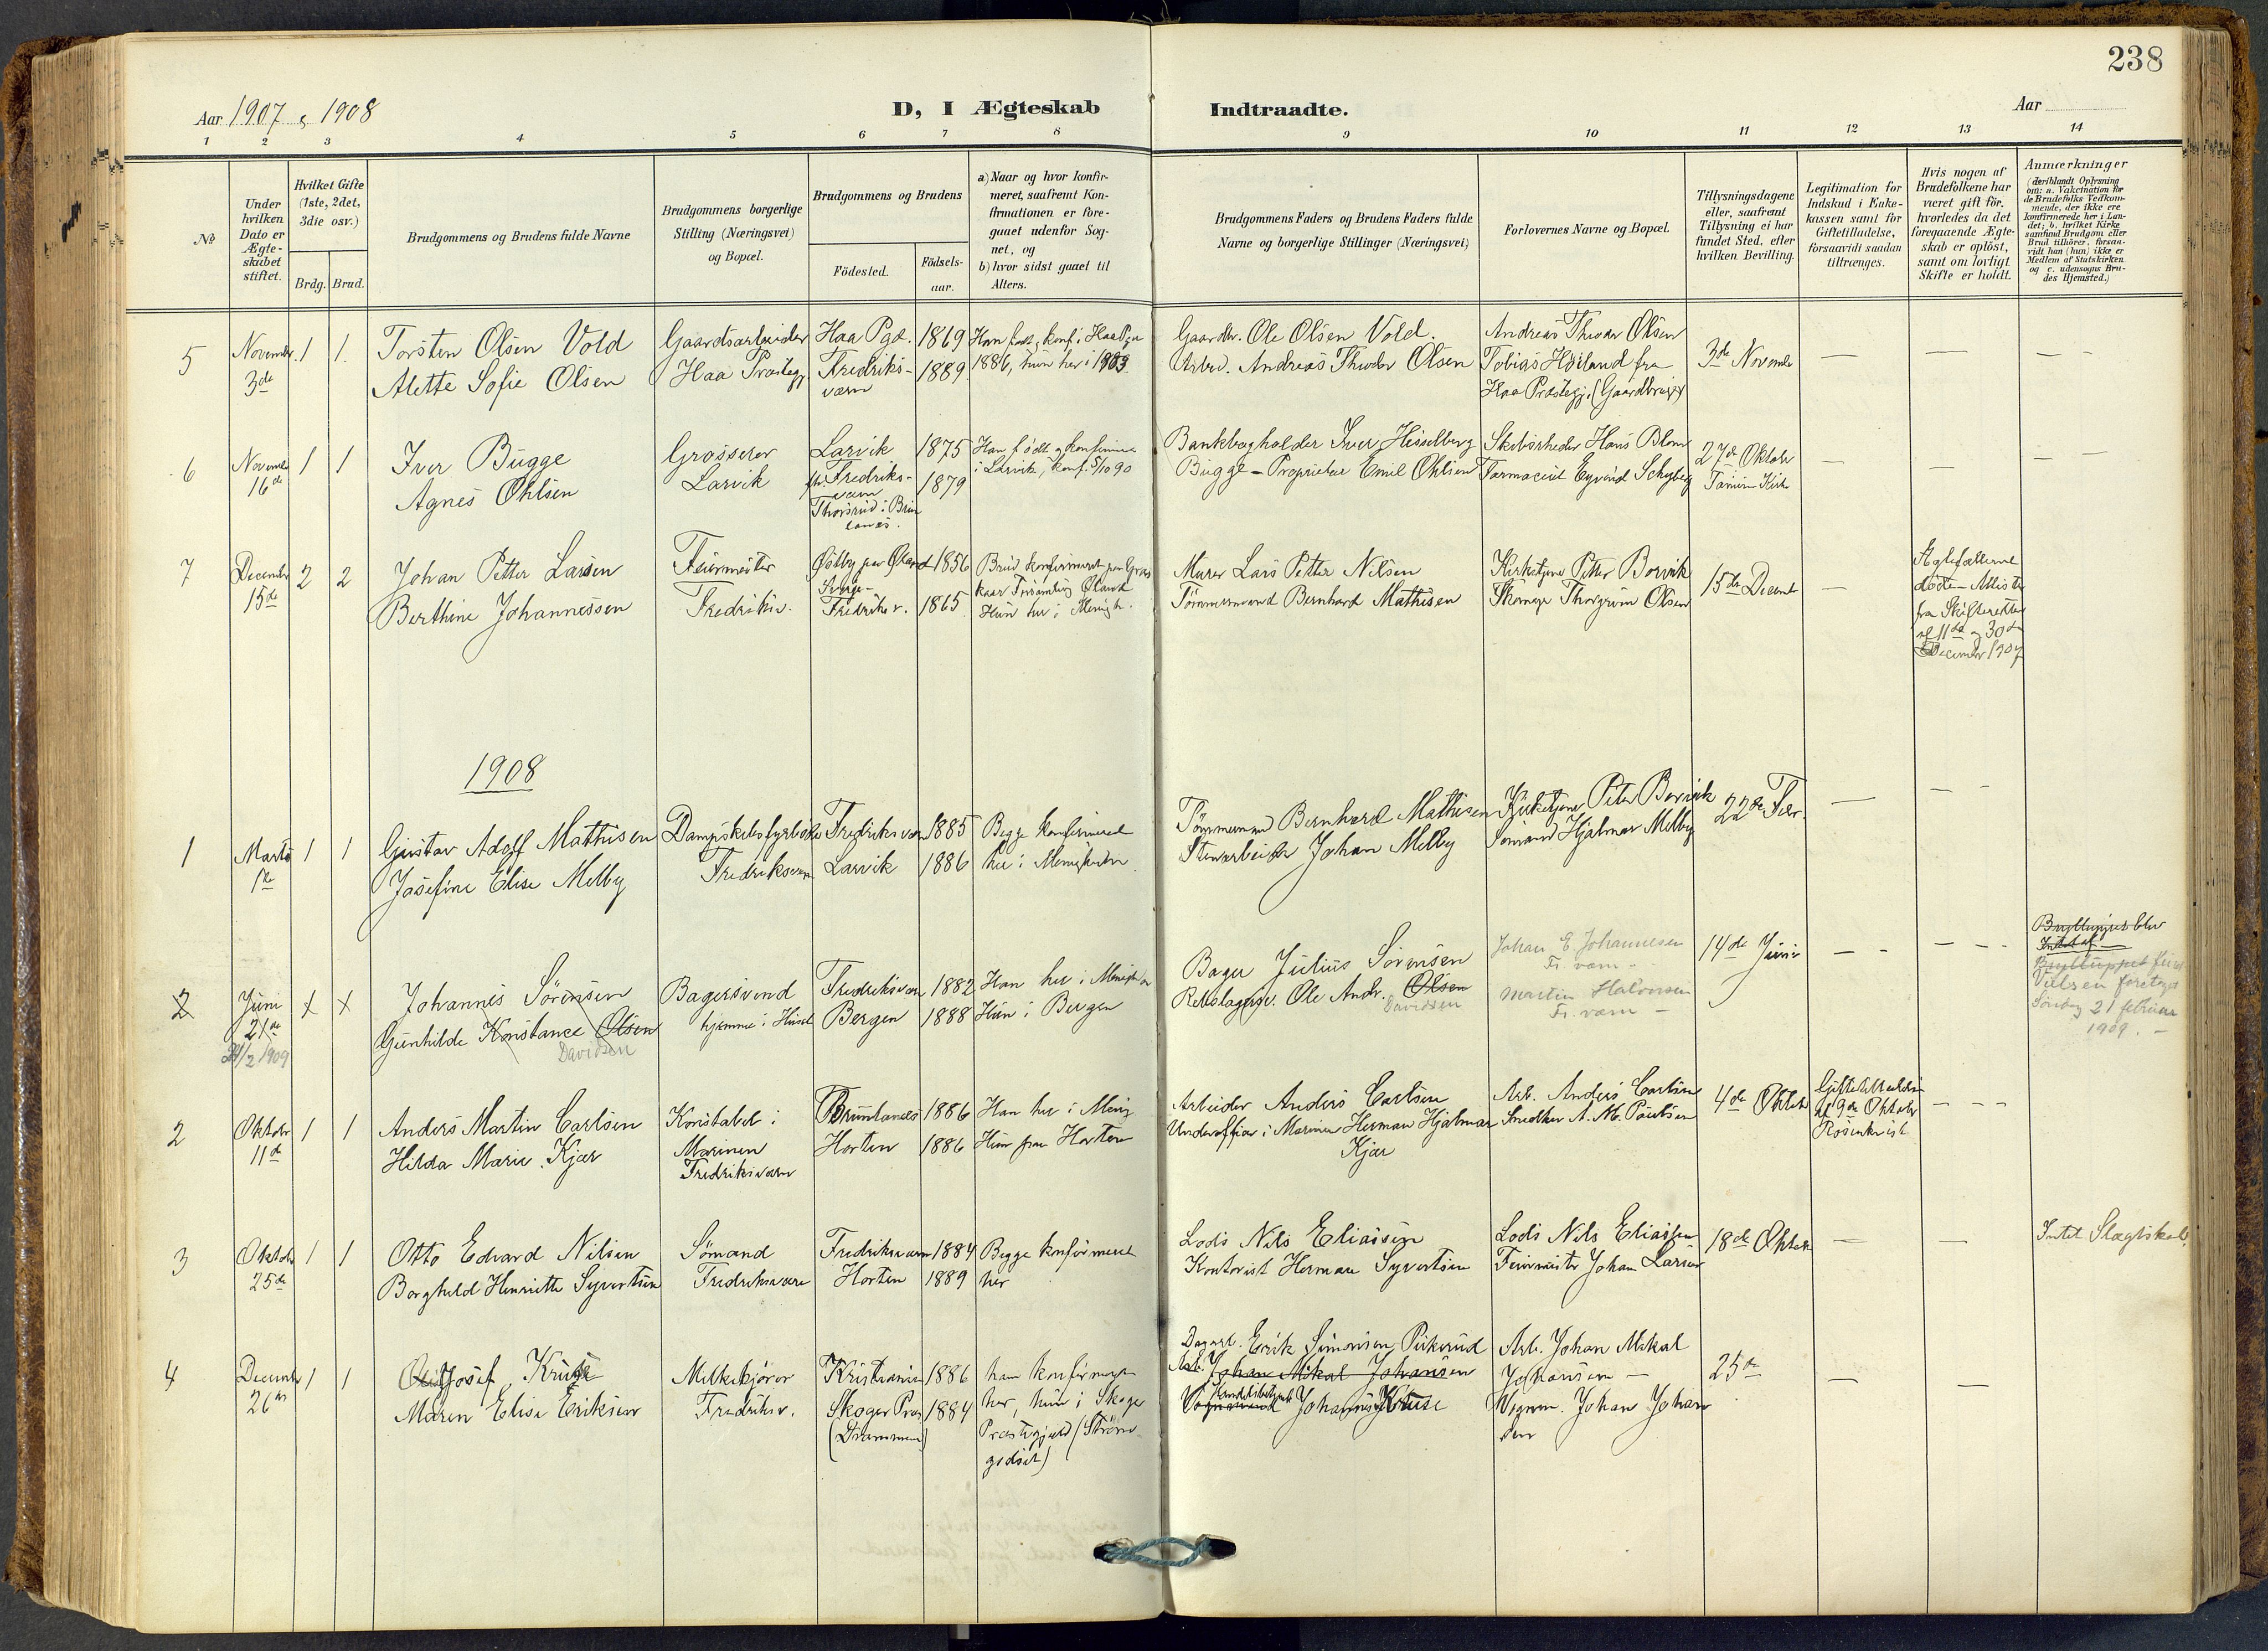 238
Aar 1907 & 1908
D, I Ægteskab Indtraadte.
Aar
1 2 3 4 5 6 7 8 9 10 11 12 13 14
No
Under hvilken Dato er Ægte-skabet stiftet.
Hvilket Gifte (1ste, 2det, 3die osv.)
Brdg. Brud.
Brudgommens og Brudens fulde Navne
Brudgommens borgerlige Stilling (Næringsvei) og Bopæl.
Brudgommens og Brudens
Födested.
Födsels-aar.
a) Naar og hvor konfir-meret, saafremt Kon-firmationen er fore-gaaet udenfor Sog-net, og
b) hvor sidst gaaet til Alters.
Brudgommens Faders og Brudens Faders fulde Navne og borgerlige Stillinger (Næringsvei)
Forlovernes Navne og Bopæl.
Tillysningsdagene eller, saafremt Tillysning ei har fundet Sted, efter hvilken Bevilling.
Legitimation for Indskud i Enke-kassen samt for Giftetilladelse, forsaavidt saadan tiltrænges.
Hvis nogen af Brudefolkene har været gift för, hvorledes da det foregaaende Ægte-skab er oplöst, samt om lovligt Skifte er holdt.
Anmærkninger
(deriblandt Oplysning om: a. Vakcination for de Brudefolks Vedkom-mende, der ikke ere konfirmerede her i Lan-det; b. hvilket Kirke-samfund Brudgom eller Brud tilhörer, forsaa-vidt han (hun) ikke er Medlem af Statskirken og c. udensogns Bru-des Hjemsted.)
5 November 3de 1 1 Torsten Olsen Vold Gaardsarbeider Haa Pgd. 1869 Han født, konf. i Haa Pgd Gaardbr. Ole Olsen Vold. Andreas Theodor Olsen 3de Novembr
Alette Sofie Olsen Haa Præstegj. Fredriks-værn 1889 1886, hun her i 1903 Arbeid. Andreas Theodor Olsen Tobias Høiland fra
Haa Præstegj. (Gaardbruger)
6 Novembr 16de 1 1 Iver Bugge Grosserer Larvik 1875 Han født og konfirmeret Bankbogholder Iver Hesselberg Skibsrheder Hans Blom 27de Oktobr
Agnes Ohlsen Larvik Fredriks-værn 1879 i Larvik, konf. 5/10 90 Bugge – Proprietær Emil Ohlsen Farmaceut Eyvind Schyberg Tanum Kirke
Thorsrud i Brun
lanes.
7 December 15de 2 2 Johan Petter Larsen Feiermester 1856 Murer Lars Petter Nilsen Kirketjener Petter Borvik 15de Decemb
Berthine Johannessen Fredriksv. Fredriksv. 1865 Hun her i Menigh. Tømmermand Bernhard Mathisen Skomager Thorgrim Olsen
Ægtefællerne
døde – Attester
fra Skifteretten
af 11te og 30te
December 1907
1908
1 Marts 1ste 1 1 Gustav Adolf Mathisen Dampskibsfyrbøder Fredriksværn 1885 Begge konfirmeret Tømmermand Bernhard Mathisen Kirketjener Peter Borvik 22de Febr.
Josefine Elise Melby Fredriksværn Larvik 1886 her i Menigheden Stenarbeider Johan Melby Sømand Hjalmar Melby
2 Juni 21de Johannes Sørensen Bagersvend Fredriksværn 1882 Han her i Menigheden Bager Julius Sørensen Johan E. Johannesen 14de Juni
21/2 1909 Gunhilde Konstance Olsen hjemme i Huset Bergen 1888 Hun i Bergen Rebslagersv. Ole Andr. Olsen Fr. værn –
Davidsen Davidsen Martin Halvorsen
Fr. værn –
Bryllupet blev
Indstel
Brylluppet
Vielsen foretages
Søndag 21 februar
1909. –
2 Oktobr 11te 1 1 Anders Martin Carlsen Konstabel i Brunlanes 1886 Han her i Menig Arbeider Anders Carlsen Arb. Anders Carlsen 4de Oktobr Giftetilladelse
Hilda Marie Kjær Marinen Horten 1886 Hun fra Horten Underofficer i Marinen Herman Hjalmar Snedker A. M. Paulsen af 9de Oktobr
Fredriksværn Kjær Rosenkvist
3 Oktobr 25de 1 1 Otto Edvard Nilsen Sømand Fredriksværn 1884 Begge konfirmeret Lods Nils Eliassen Lods Nils Eliassen 18de Oktobr Intet Slægtskab.
Borghild Henriette Syvertsen Fredriksværn Horten 1889 her Kontorist Herman Syvertsen Feiermester Johan Larsen
4 Decembr 26de 1 1 Josef Kruse Melkekjører Kristiania 1886 han konfirmeret Dagarb. Erik Simonsen Pukerud Arb. Johan Mikal 25de
Maren Elise Eriksen Fredriksv. Skoger Præs 1884 her, hun i Skoger Arb. Johan Mikal Johansen Johansen –
(Drammen) Præstegjeld (Strøms Johannes Kruse Vognm. Johan Johan
godset) sen